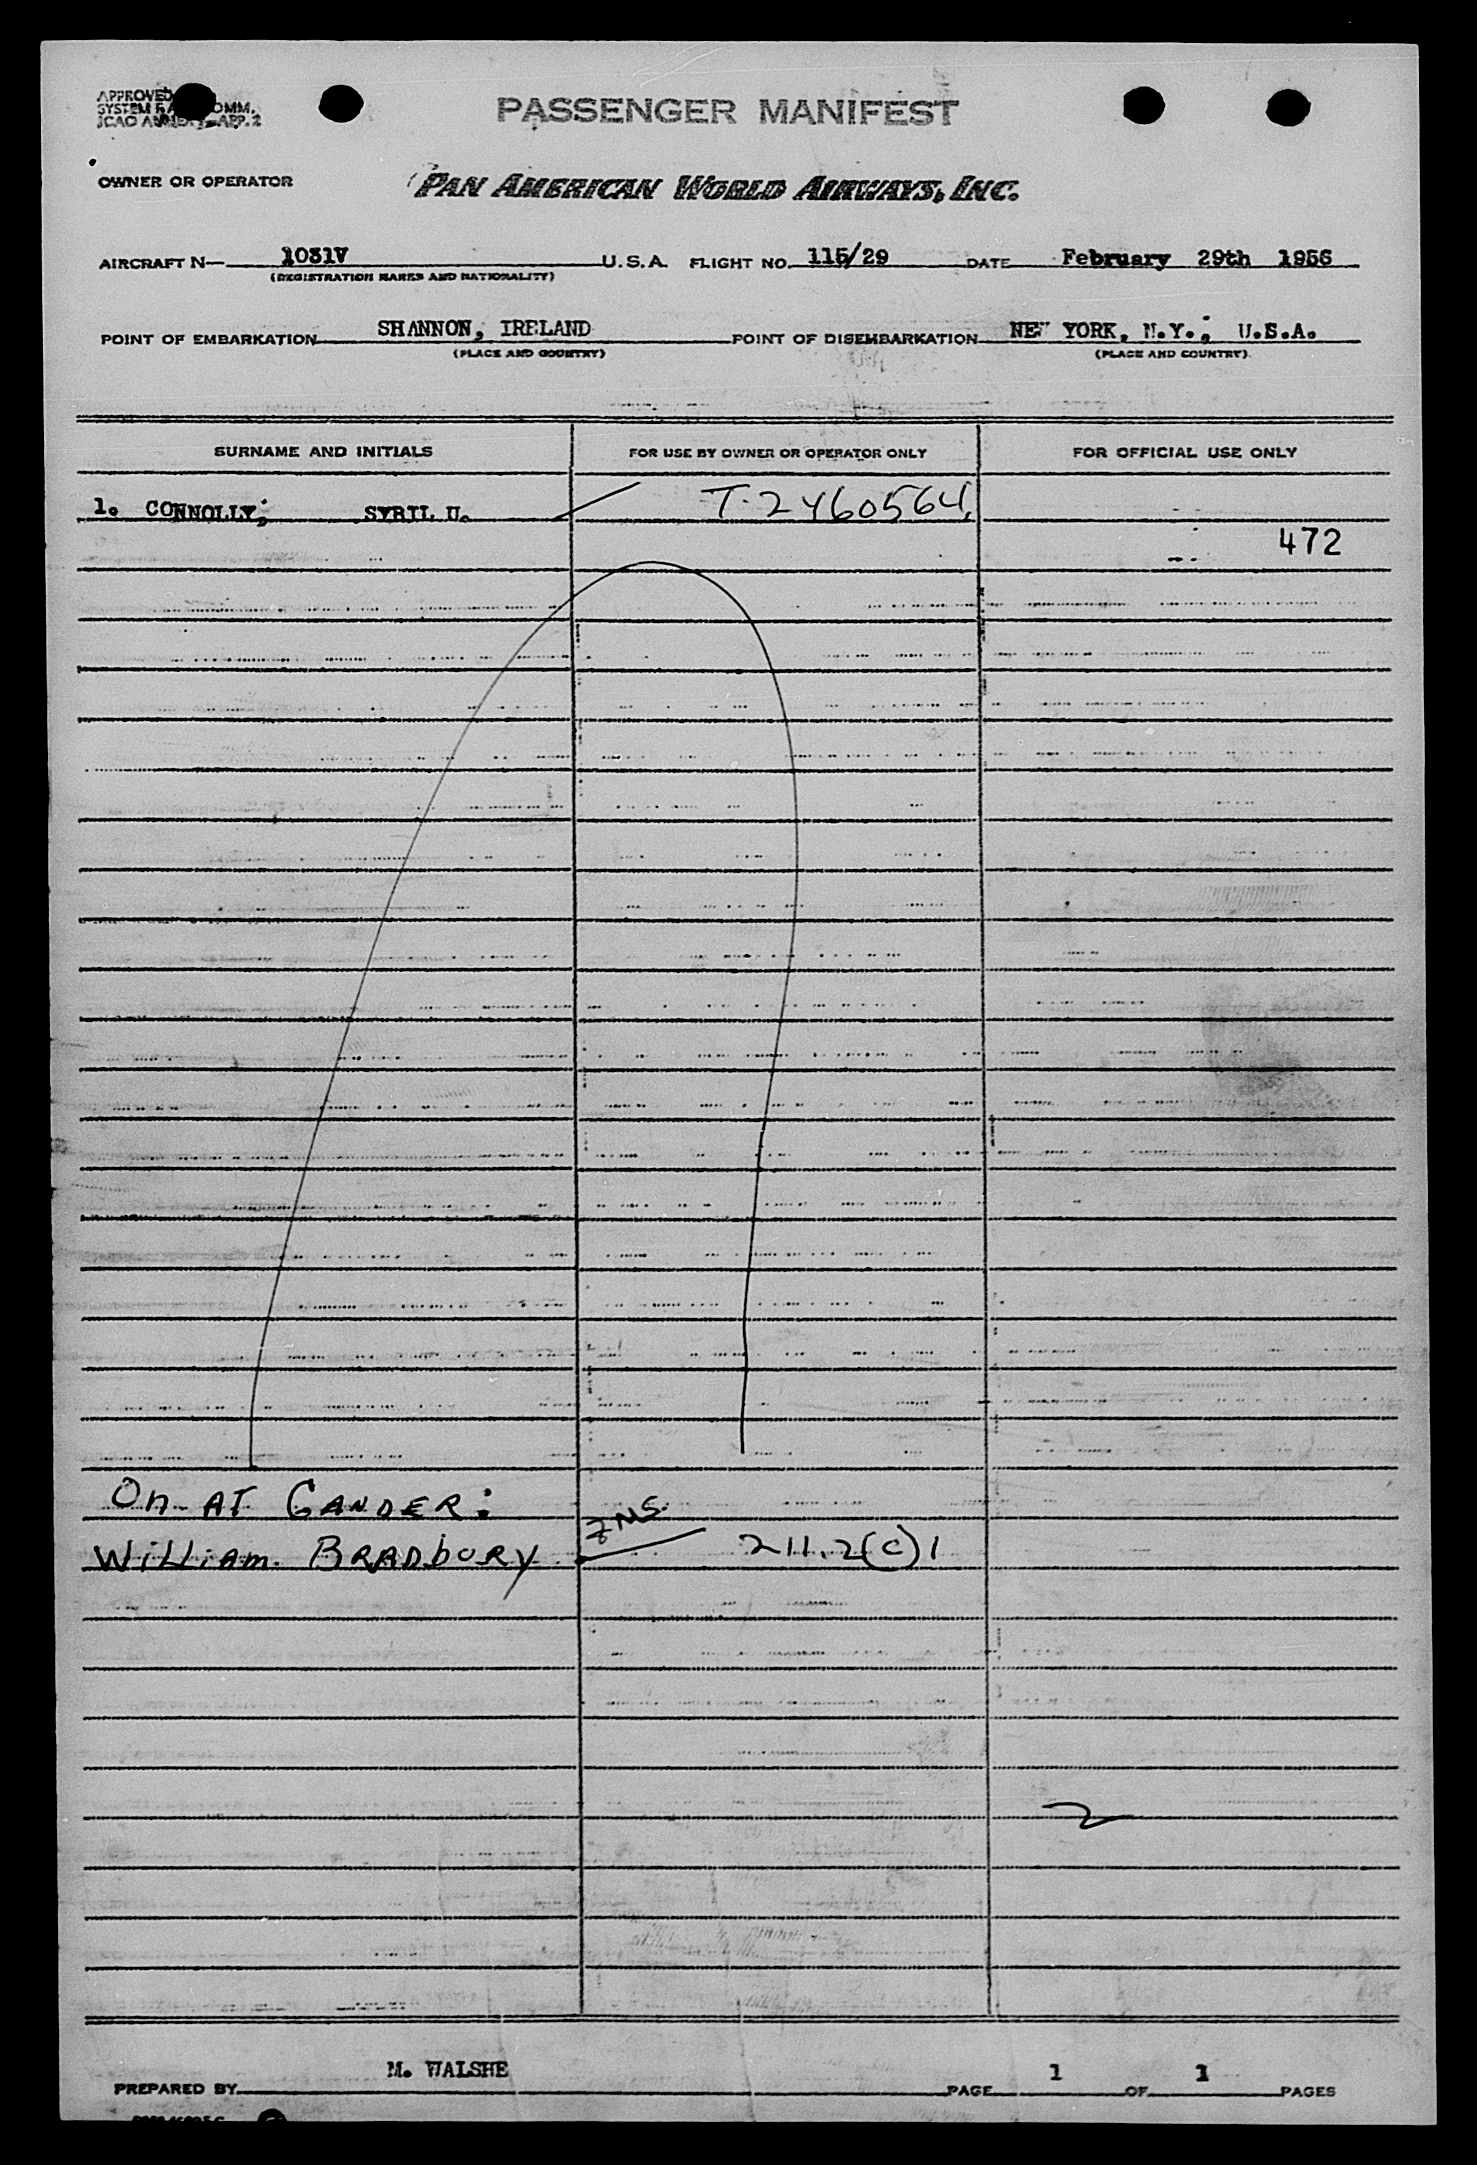 APPROVED
SYSTEM COMM.
ICAO ANNEX APP. 2
PASSENGER MANIFEST
OWNER OR OPERATOR PAN AMERICAN WORLD AIRWAYS, INC.
AIRCRAFT N— 1031V U.S.A. FLIGHT NO. 115/29 DATE February 29th 1956
(REGISTRATION MARKS AND NATIONALITY)
POINT OF EMBARKATION SHANNON, IRELAND POINT OF DISEMBARKATION NEW YORK, N.Y., U.S.A.
(PLACE AND COUNTRY) (PLACE AND COUNTRY)
SURNAME AND INITIALS FOR USE BY OWNER OR OPERATOR ONLY FOR OFFICIAL USE ONLY
1. CONNOLLY, SYBIL U. T-2460564
472
On AT GANDER:
William BRADbURY 211.2(c)1
2
PREPARED BY M. WALSHE PAGE 1 OF 1 PAGES